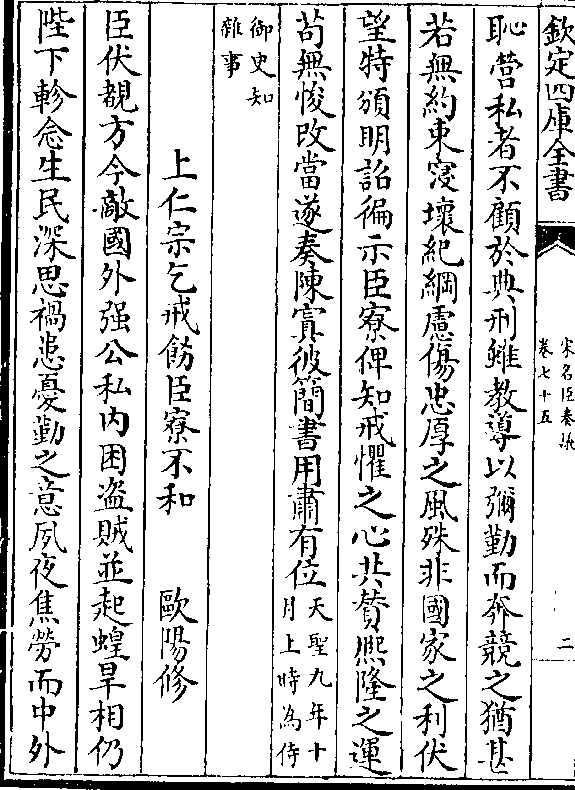 欽定四庫全書
宋名臣奏議
卷七十五
二
恥營私者不顧於典刑雖教導以彌勤而奔競之猶甚
若無約束寖壞紀綱慮傷忠厚之風殊非國家之利伏
望特頒明詔徧示臣寮俾知戒懼之心共賛熙隆之運
苟無悛改當遂奏陳寘彼簡書用肅有位天聖九年十
月上時為侍
御史知
雜事
上仁宗乞戒飭臣寮不和 歐陽修
臣伏覩方今敵國外强公私内困盗賊並起蝗旱相仍
陛下軫念生民深思禍患憂勤之意夙夜焦勞而中外